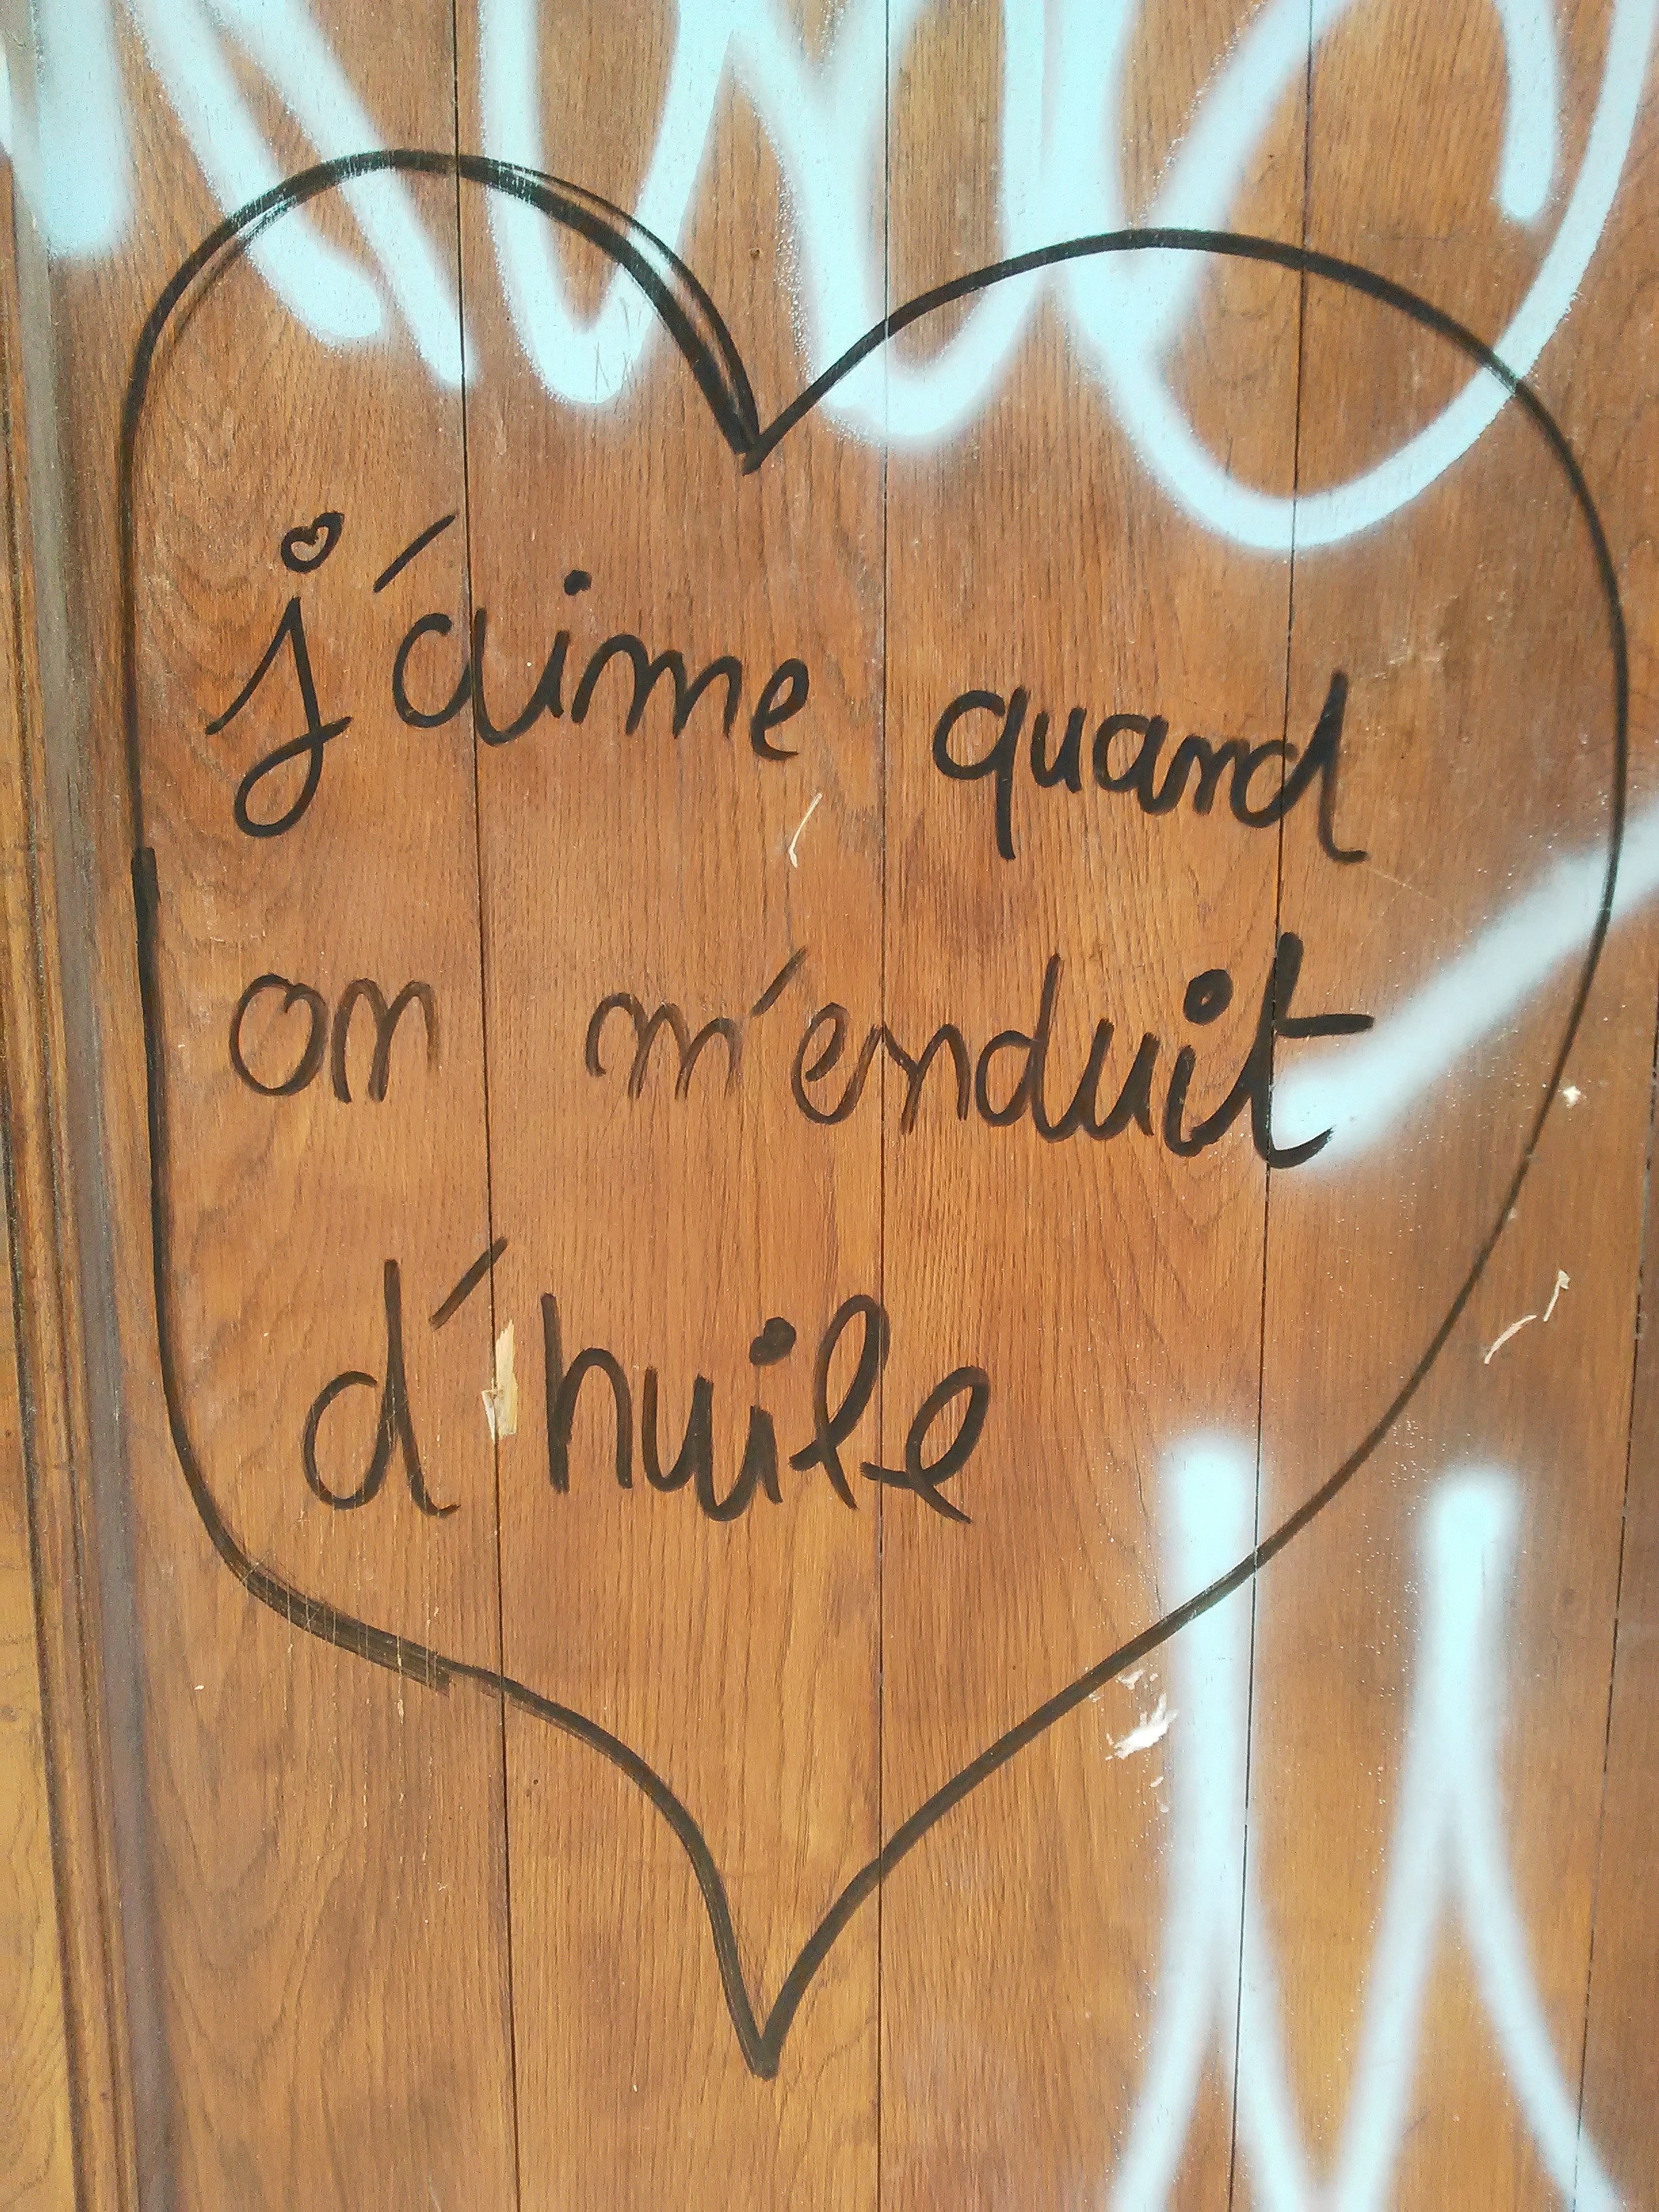 j'aime quand
on m'enduit
d'huile